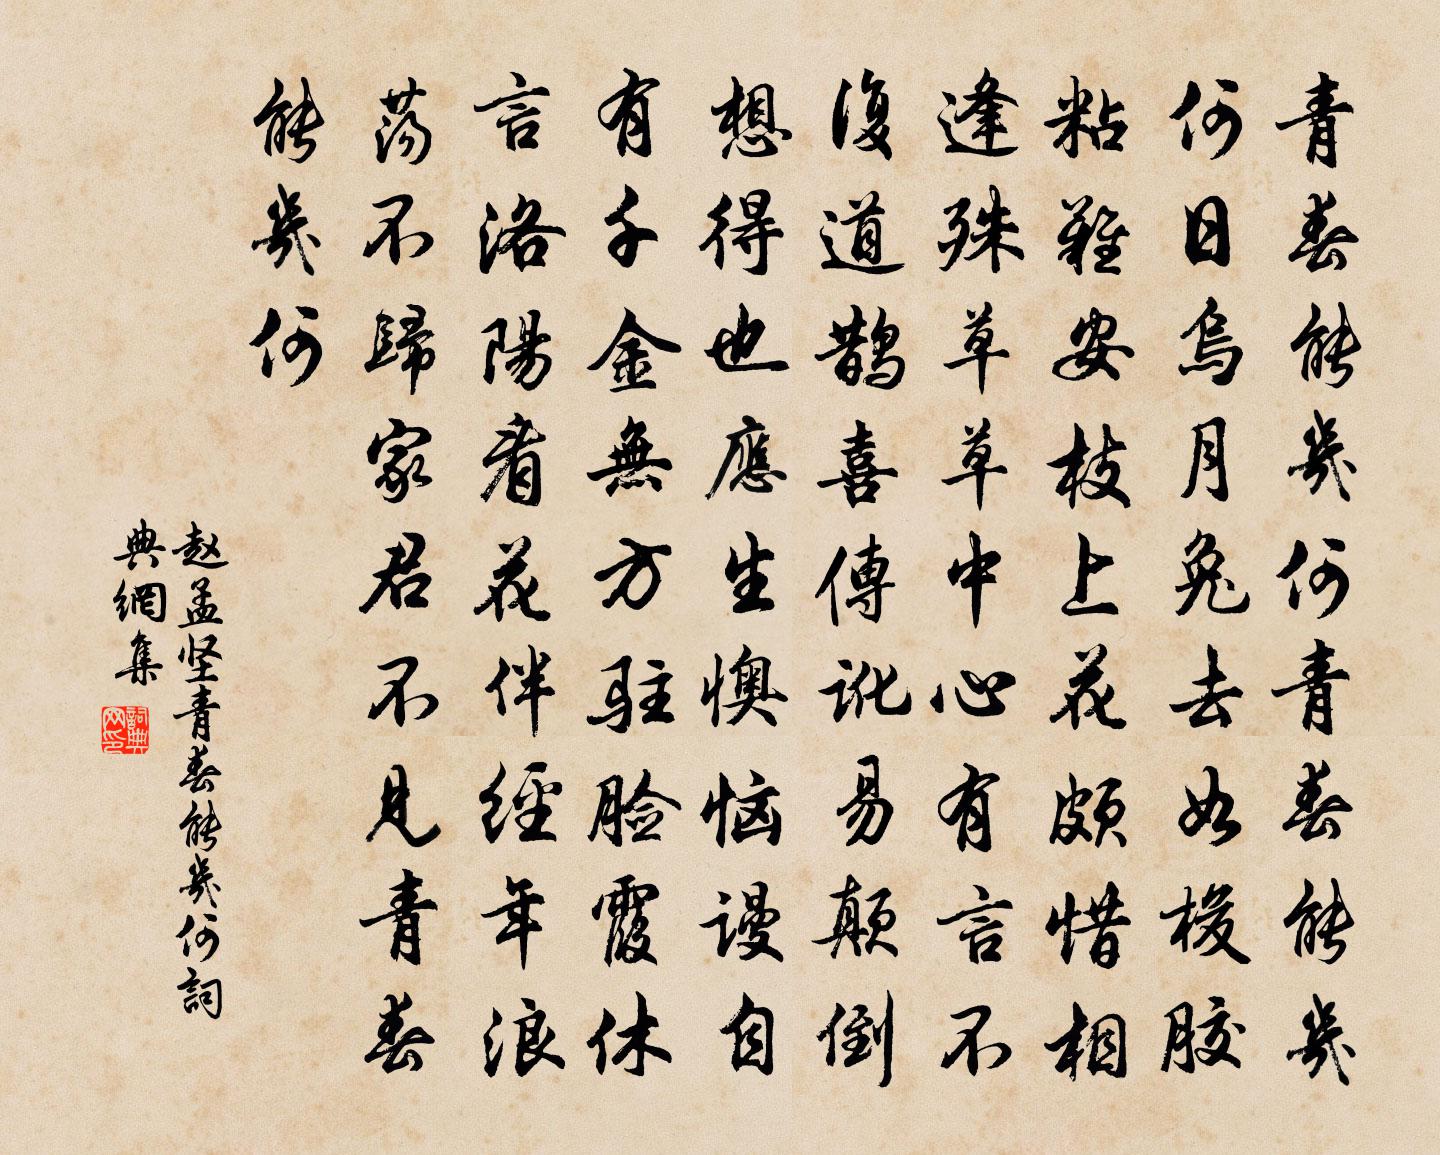 青春能幾何青春能幾
何日烏月兔去如梭膠
粘難安枝上花頗惜相
逢殊草草中心有言不
復道鵲喜傳訛易顛倒
想得也應生懊恼謾自
有千金無方駐脸霞休
言洛陽看花伴經年浪
荡不歸家君不見青春
能幾何
赵孟坚青春能幾何詞
典網集
詞典网印